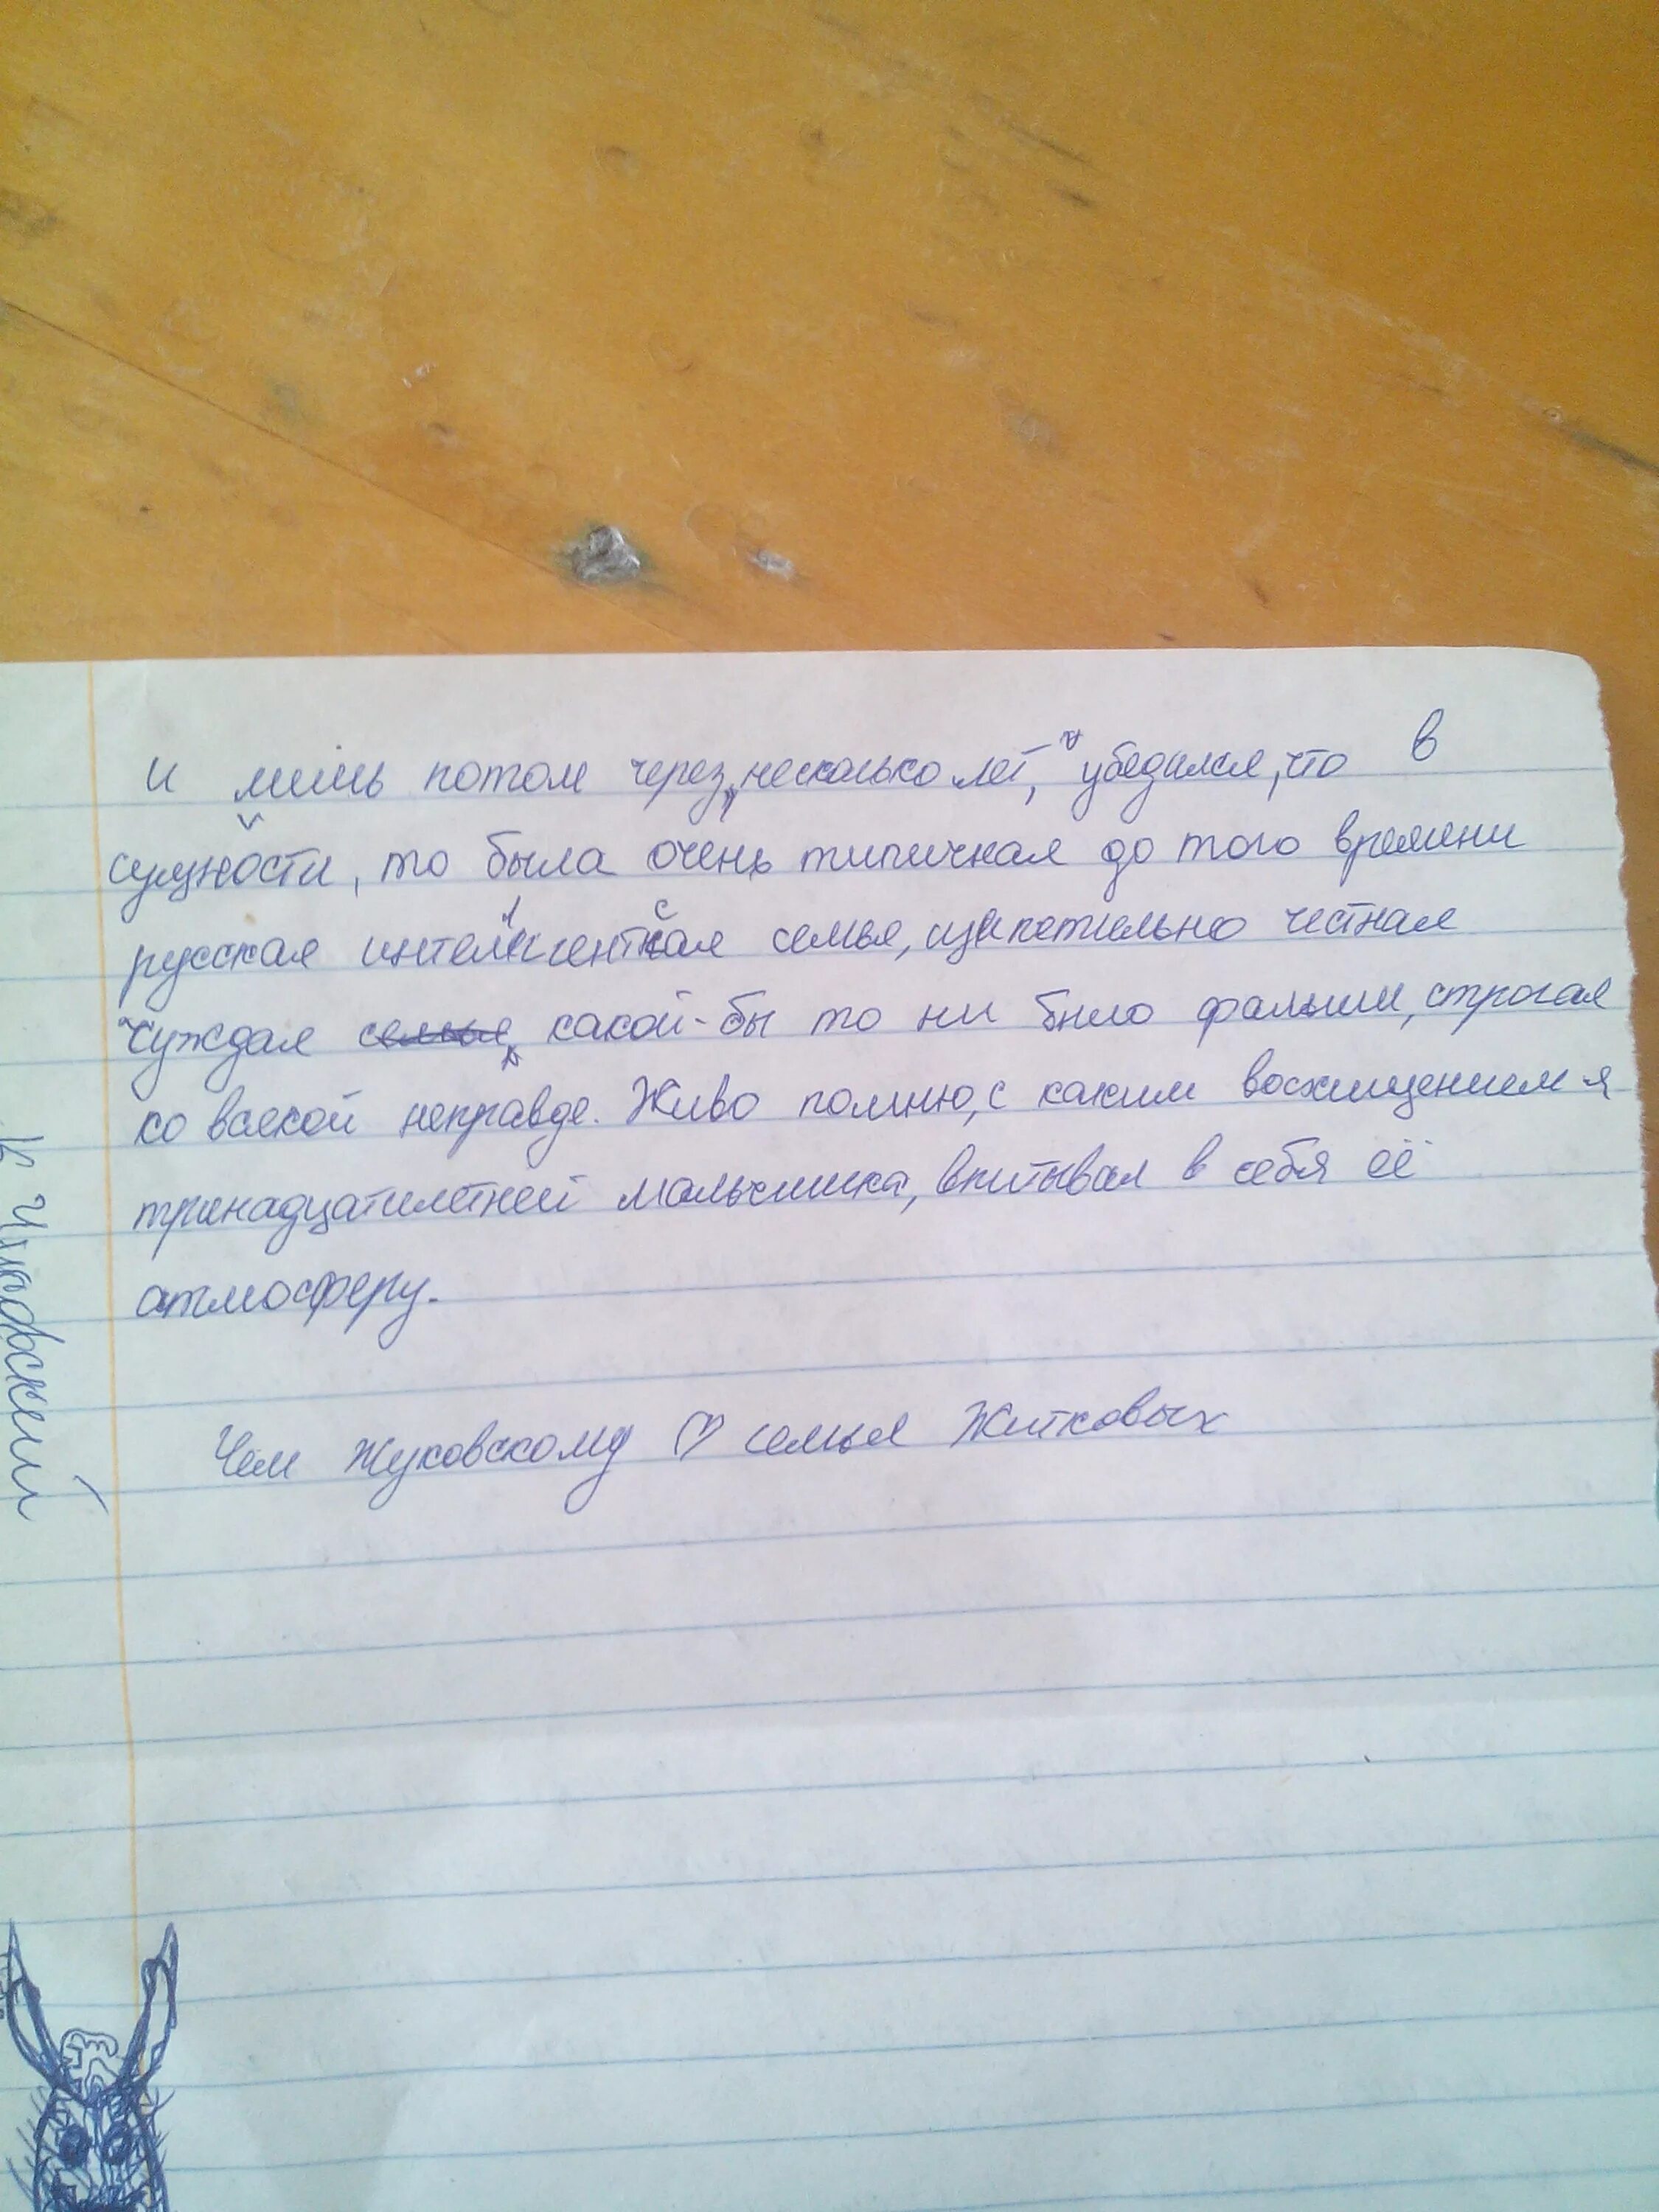 и лишь потом через, несколько лет, я убедился, что в
сущности, то была очень типичная до того времени
русская интеллигентская семья, щепетильно честная
чуждая семья какой-бы то ни было фальши, строгая
ко всякой неправде. Живо помню, с каким восхищением я
тринадцатилетней мальчишка, впитывал в себя её
атмосферу.
Чем Жуковскому ♡ семья Житковых
К Чуковский